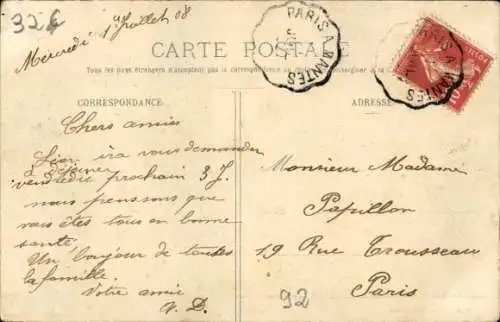 32 E
Mercredi 1er Juillet 08
PARIS A NANTES
PARIS A NANTES
POSTES
10
CARTE POSTALE
Tous les pays étrangers n'acceptent pas la correspondance au
CORRESPONDANCE
ADRESSE
Chers amies
Léon ira vous demander
à déjeuner
vendredi prochain 3 J.
nous pensons que
vous êtes tous en bonne
santé.
Un bonjour de toutes
la famille.
Votre amie
V. D.
Monsieur Madame
Papillon
19 Rue Trousseau
Paris
92